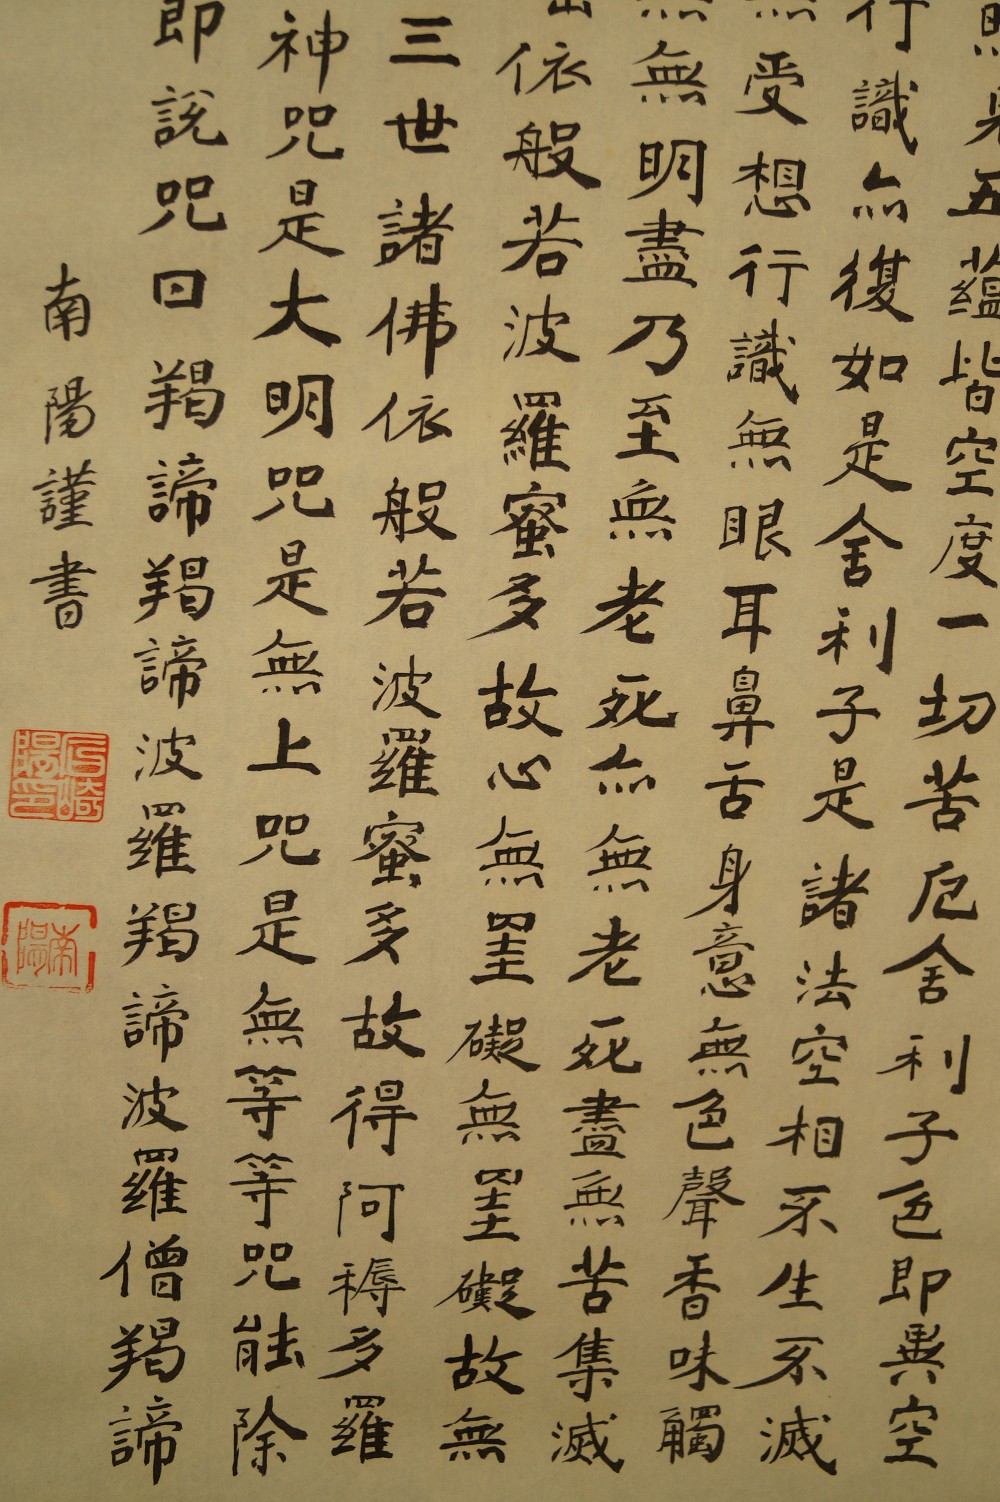 見五蘊皆空度一切苦厄舍利子色即異空
行識亦復如是舍利子是諸法空相不生不滅
無受想行識無眼耳鼻舌身意無色聲香味觸
無無明盡乃至無老死亦無老死盡無苦集滅
依般若波羅蜜多故心無罣礙無罣礙故無
三世諸佛依般若波羅蜜多故得阿耨多羅
神咒是大明咒是無上咒是無等等咒能除
即說咒曰羯諦羯諦波羅羯諦波羅僧羯諦
南陽謹書
南陽